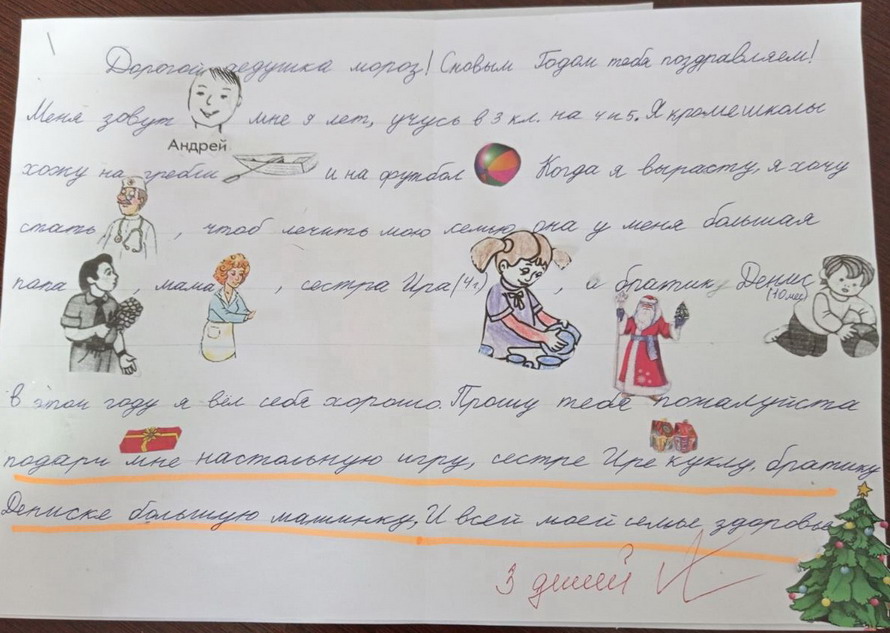 Дорогой дедушка мороз! Сновым Годом тебя поздравляем!
Меня зовут мне 9 лет, учусь в 3 кл. на 4 и 5. Я кроме школы
Андрей
хожу на гребли и на футбол Когда я вырасту, я хочу
стать , чтоб лечить мою семью она у меня большая
папа , мама , сестра Ира (4г) , и братик Денис
(10 мес)
в этом году я вел себя хорошо. Прошу тебя пожалуйста
подари мне настольную игру, сестре Ире куклу, братику
Дениске большую машинку, И всей моей семье здоровья
3 детей